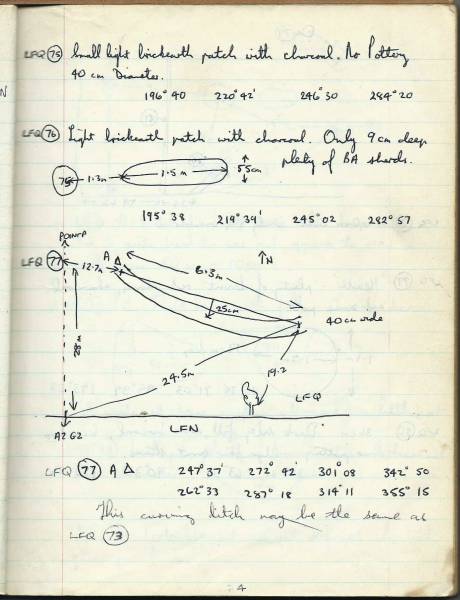 LFQ 75 Small light brickearth patch with charcoal. No Pottery
40 cm Diameter.
196° 40 220° 42' 246° 30 284° 20
LFQ 76 Light brickearth patch with charcoal. Only 9 cm deep
plenty of BA sherds.
76 1.3m 1.5m 55cm
195° 38 219° 39' 245° 02 282° 57
POINT P
LFQ 77 12.7m A Δ 6.3m ↑N
25cm 40cm wide
28m
24.5m 19.2
LFQ
A2 G2 LFN
LFQ 77 A Δ 247° 37' 272° 42' 301° 08 342° 50
262° 33 287° 18 314° 11 355° 15
This curving ditch may be the same as
LFQ 73
4